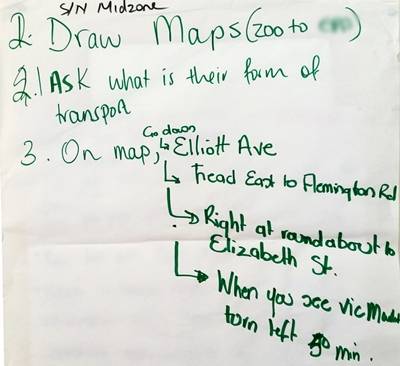 S/N Midzone
2. Draw Maps (zoo to
2.1 Ask what is their form of
transport
Go down
3. On map, ↳ Elliott Ave
↳ Head East to Flemington Rd
↳ Right at roundabout to
Elizabeth St.
↳ When you see Vic Market
turn left 50 min.